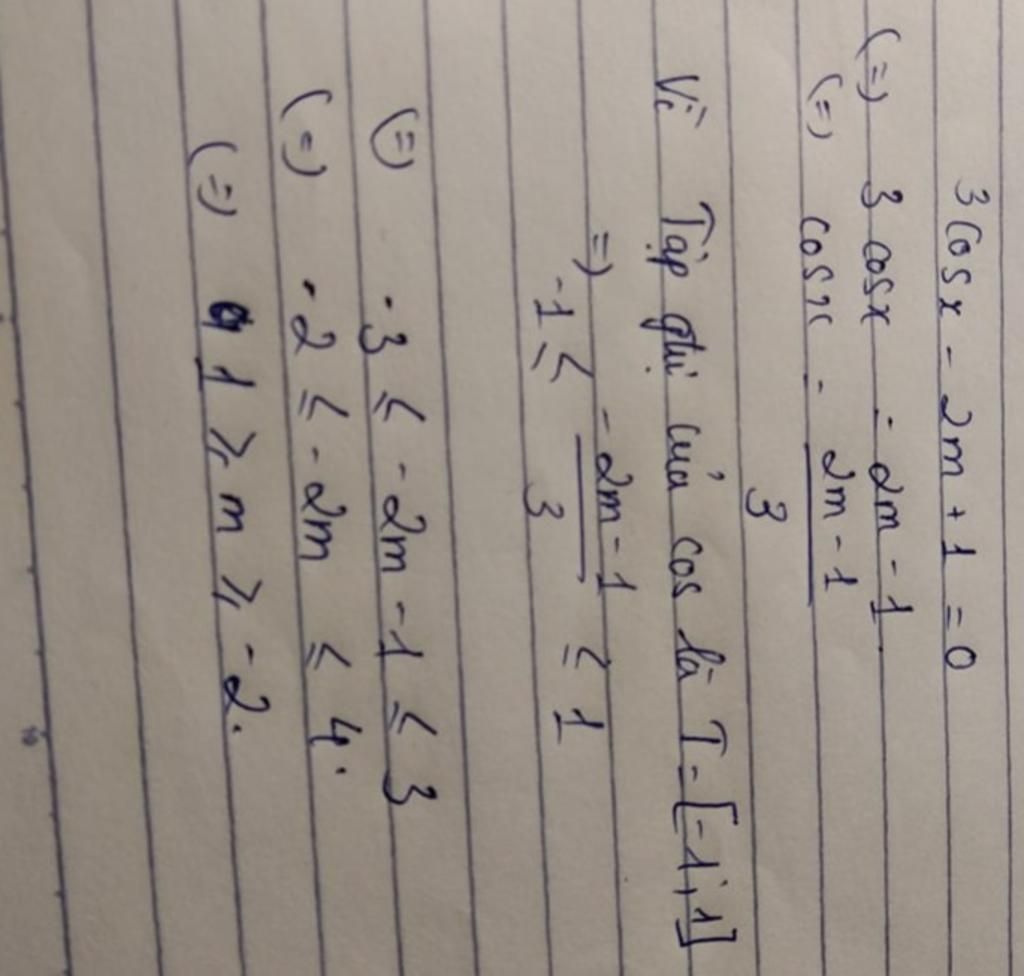 3 cos x - 2m + 1 = 0
(=) 3 cos x = 2m - 1
(=) cos x = 2m - 1
3
Vì Tập giá trị của cos là T = [-1; 1]
=) -1 ≤ -2m - 1 / 3 ≤ 1
(=) -3 ≤ -2m - 1 ≤ 3
(=) -2 ≤ -2m ≤ 4.
(=) 1 ≥ m ≥ -2.